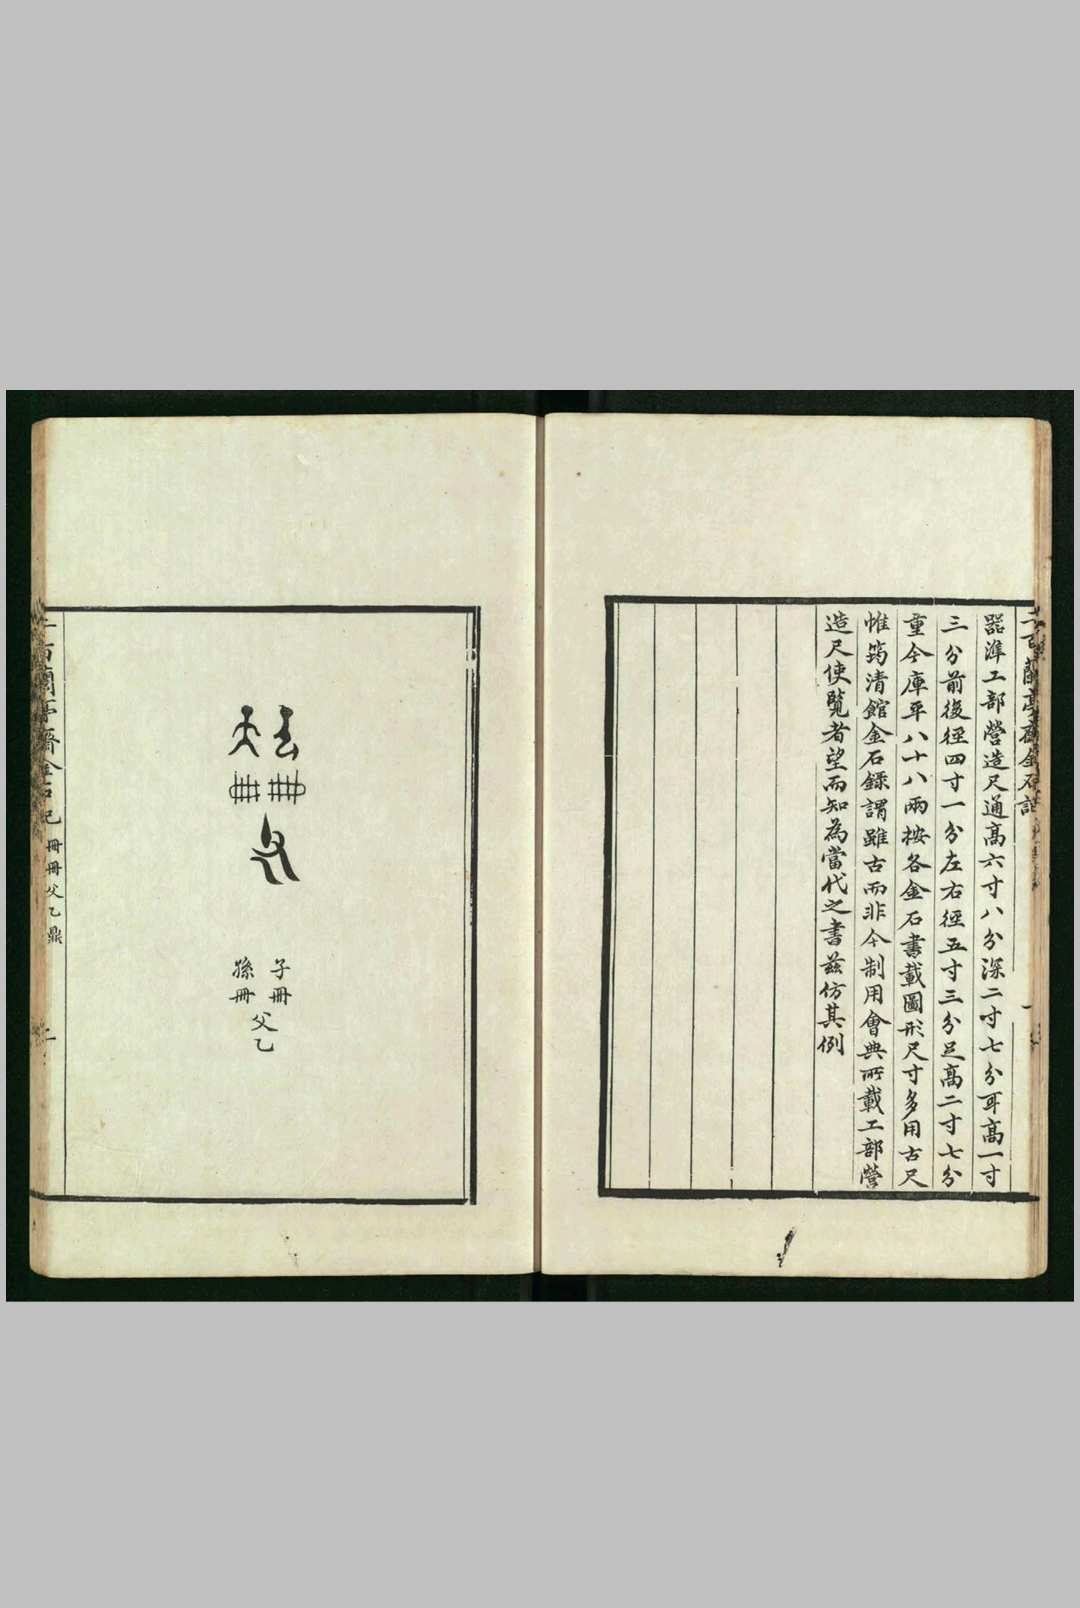 二百蘭亭齋金石記
器準工部營造尺通高六寸八分深二寸七分耳高一寸
三分前後徑四寸一分左右徑五寸三分足高二寸七分
重今庫平八十八兩按各金石書載圖形尺寸多用古尺
惟筠清館金石錄謂雖古而非今制用會典所載工部營
造尺使覽者望而知為當代之書茲仿其例
子冊
孫冊
父乙
二百蘭亭齋金石記 冊冊父乙鼎 二